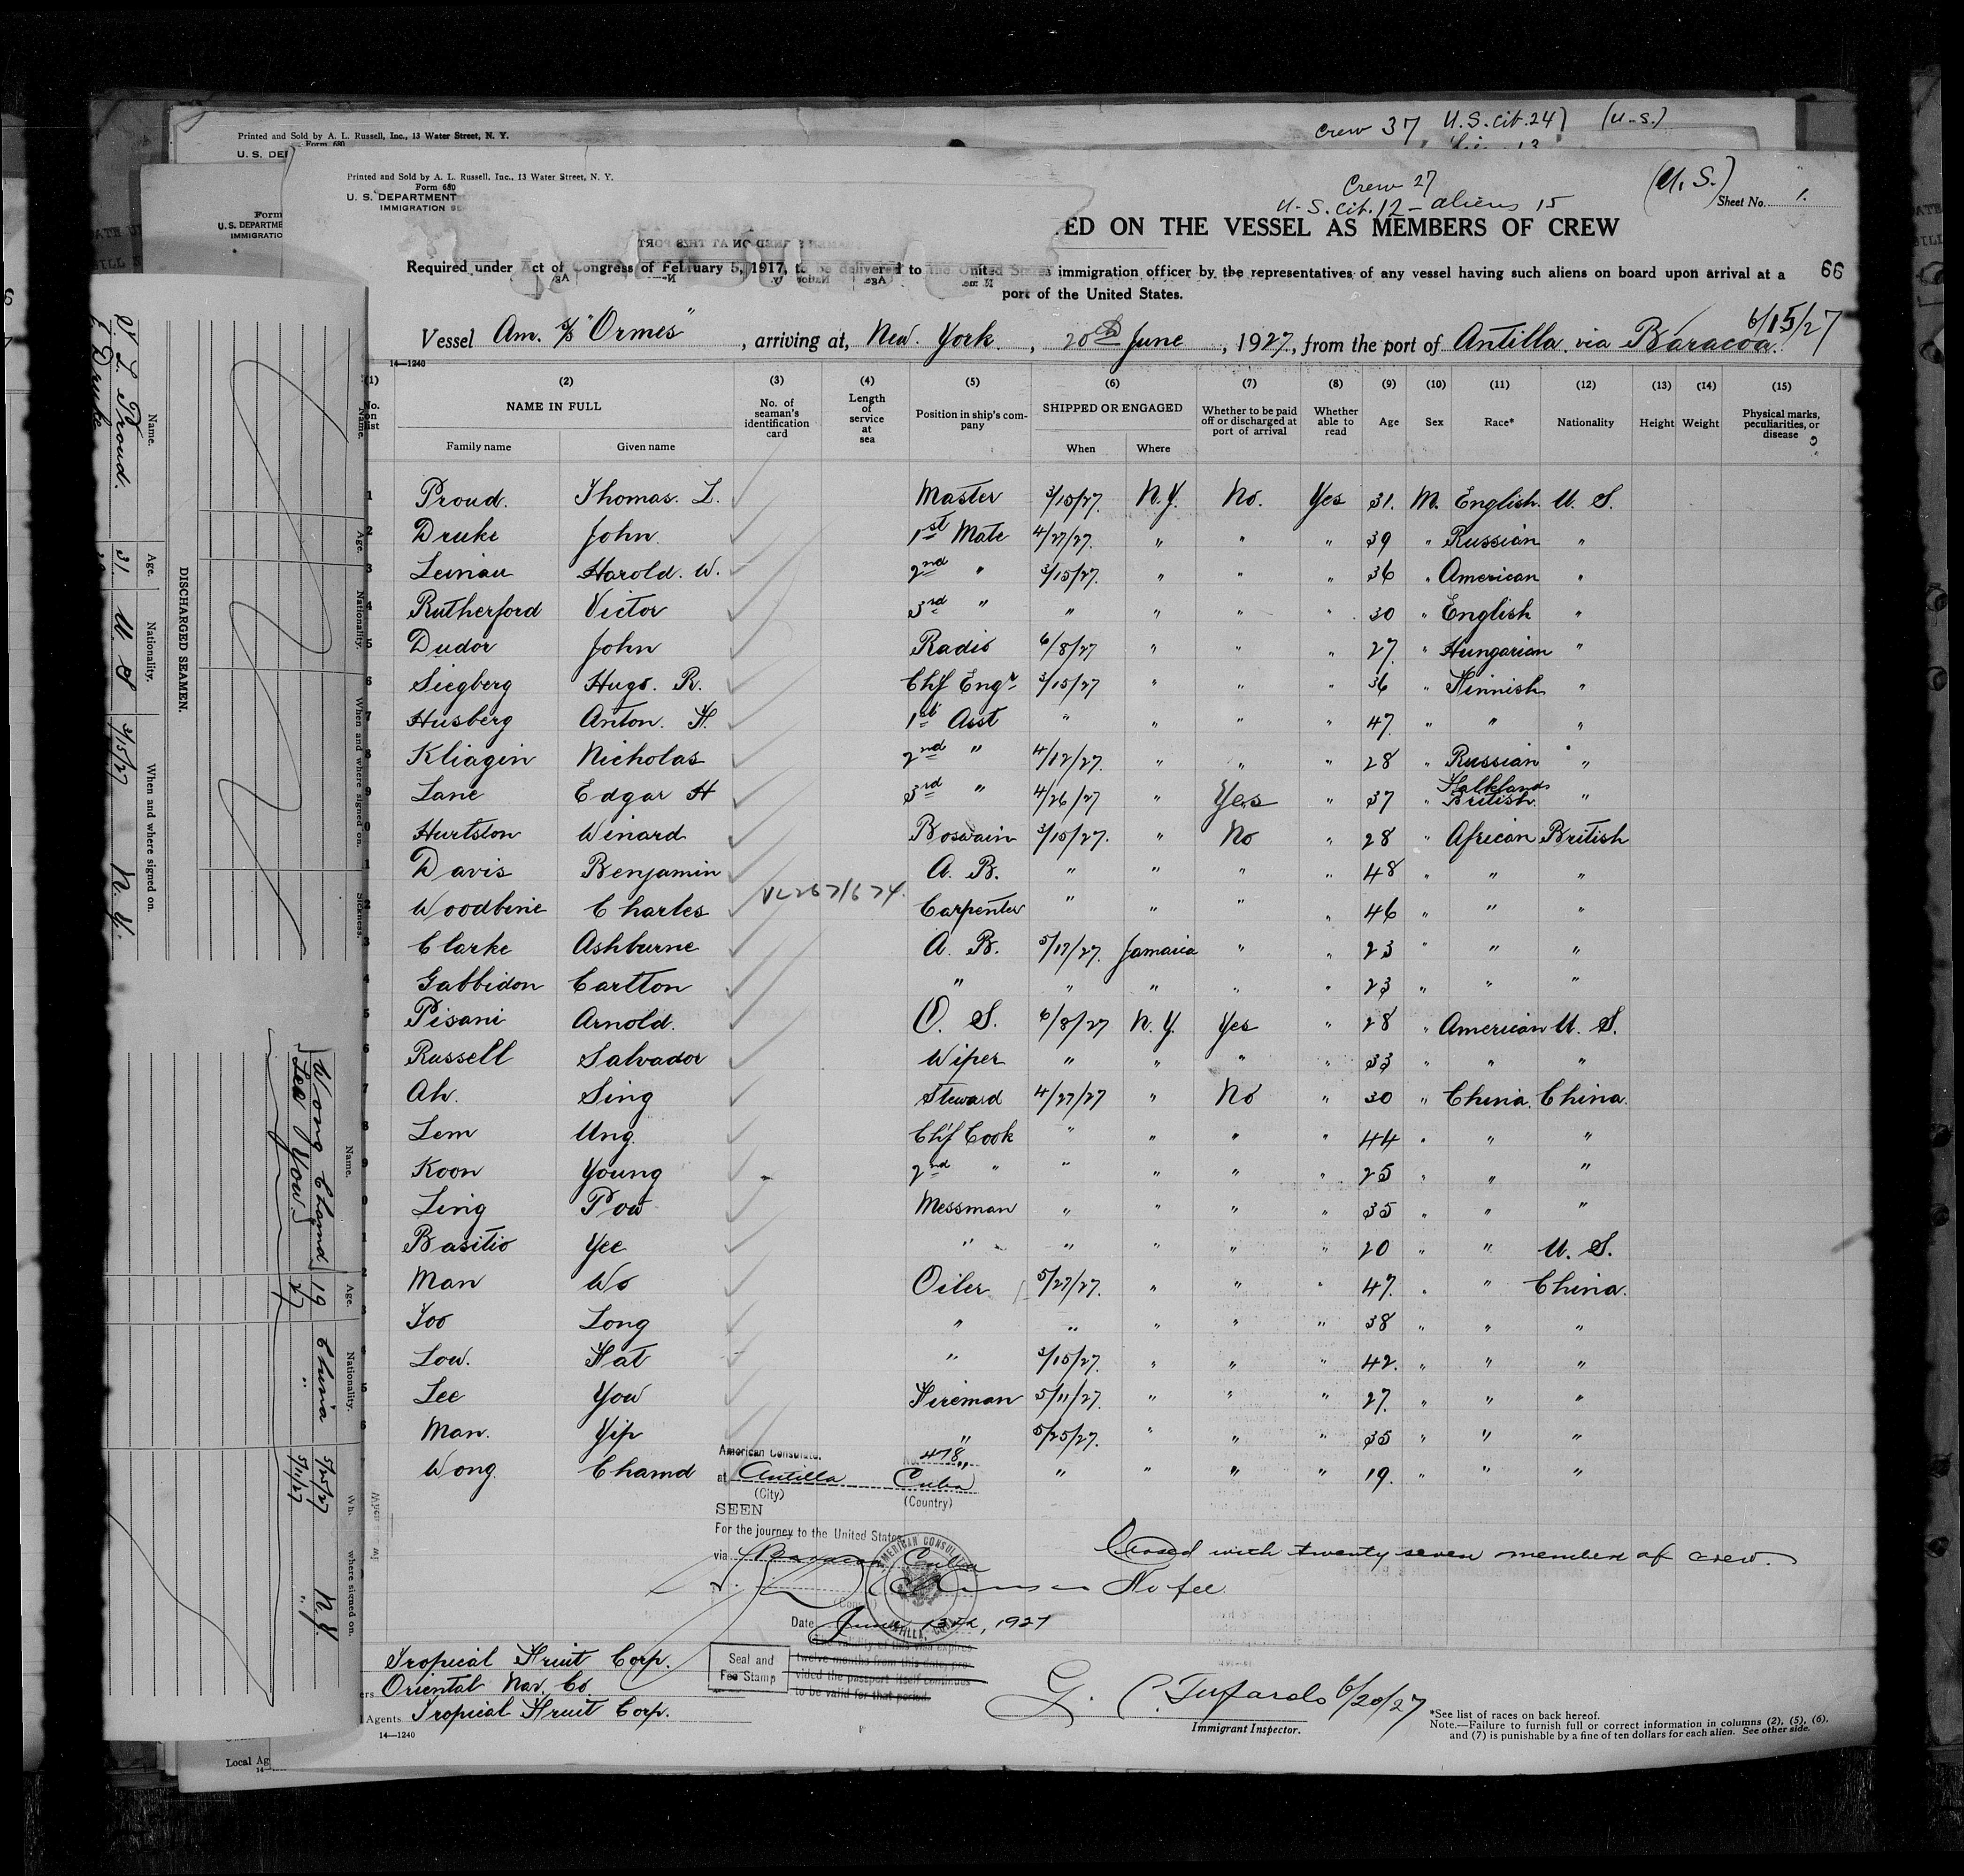 Printed and Sold by A. L. Russell, Inc., 13 Water Street, N. Y.
Form 680
U. S. DE
Crew 37 U.S. cit. 24 (U.S.)
Form
U. S. DEPARTME
IMMIGRATIO
Printed and Sold by A. L. Russell, Inc., 13 Water Street, N. Y.
Form 680
U. S. DEPARTMENT
IMMIGRATION SE
Crew 27
U.S. cit. 12 – aliens 15
(U. S.)
Sheet No. 1.
ED ON THE VESSEL AS MEMBERS OF CREW
Required under Act of Congress of February 5, 1917, to be delivered to the United States immigration officer by the representatives of any vessel having such aliens on board upon arrival at a
port of the United States.
66
6/15/27
Vessel Am. S/S "Ormes", arriving at, New York, 20th June, 1927, from the port of Antilla via Baracoa.
14—1240
(1) (2) (3) (4) (5) (6) (7) (8) (9) (10) (11) (12) (13) (14) (15)
No. on list
NAME IN FULL
Family name Given name
No. of seaman's identification card
Length of service at sea
Position in ship's company
SHIPPED OR ENGAGED
When Where
Whether to be paid off or discharged at port of arrival
Whether able to read
Age Sex Race* Nationality Height Weight
Physical marks, peculiarities, or disease
1 Proud. Thomas. L. Master 3/15/27. N.Y. No. Yes 31. M. English. U. S.
2 Druke John. 1st Mate 4/27/27. " " " 39 " Russian "
3 Leinau Harold. W. 2nd " 3/15/27. " " " 36 " American "
4 Rutherford Victor 3rd " " " " " 30 " English "
5 Dudor John Radio 6/8/27 " " " 27. " Hungarian "
6 Siegberg Hugo. R. Chf Engr 3/15/27 " " " 36 " Finnish "
7 Husberg Anton. H. 1st Asst " " " " 47. " " "
8 Kliagin Nicholas 2nd " 4/12/27. " " " 28 " Russian "
9 Lane Edgar H 3rd " 4/26/27 " Yes " 37 " Falklands British "
0 Hurtston Winard Boswain 3/15/27. " No " 28 " African British
1 Davis Benjamin A. B. " " " " 48 " " "
2 Woodbine Charles Carpenter " " " " 46 " " "
3 Clarke Ashburne A. B. 5/17/27. Jamaica " " 23 " " "
4 Gabbidon Carlton " " " " " 23 " " "
5 Pisani Arnold. O. S. 6/8/27 N. Y. Yes " 28 " American U. S.
6 Russell Salvador Wiper " " " " 33 " " "
7 Ah. Sing Steward 4/27/27 " No " 30 " China. China.
8 Lem Ung Chf Cook " " " " 44 " " "
9 Koon Young 2nd " " " " " 25 " " "
0 Ling Pow Messman " " " " 35 " " "
1 Basitio Yee " " " " " 20 " " U. S.
2 Man Wo Oiler 5/27/27. " " " 47. " " China.
3 Foo Long " " " " " 38 " " "
4 Low. Hat " 3/15/27. " " " 42. " " "
5 Lee You Fireman 5/11/27. " " " 27. " " "
6 Man. Yip " 5/25/27. " " " 35 " " "
Wong Chamd " " " " " 19. " " "
American Consulate. No. 478
at Antilla Cuba
(City) (Country)
SEEN
For the journey to the United States
via Baracoa, Cuba
AMERICAN CONSULA
No fee
Closed with twenty seven members of crew.
Date June 13th, 1927
The validity of this visa expires
twelve months from this date, pro-
vided the passport itself continues
to be valid for that period.
Seal and
Fee Stamp
Tropical Fruit Corp.
Oriental Nav. Co
Agents Tropical Fruit Corp.
14—1240
6/20/27
Immigrant Inspector.
*See list of races on back hereof.
Note.—Failure to furnish full or correct information in columns (2), (5), (6),
and (7) is punishable by a fine of ten dollars for each alien. See other side.
Local Ag
DISCHARGED SEAMEN.
Name. Age. Nationality. When and where signed on.
Proud. 31. U S 3/15/27 N. Y.
Druke
Name. Age. Nationality. When and where signed on. Sickness.
Name. Age. Nationality. Wh. where signed on.
Wong Chamd 19 China 5/25/27 N. Y.
Lee You 27 " 5/11/27 "